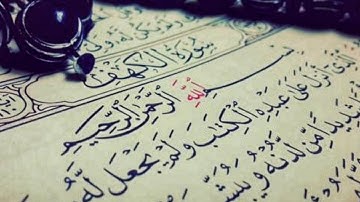 سُورَةُ الْكَهْفِ
بِسْمِ اللَّهِ الرَّحْمَٰنِ الرَّحِيمِ
أَنزَلَ عَلَىٰ عَبْدِهِ الْكِتَابَ وَلَمْ يَجْعَل لَّهُ
شَدِيدًا مِّن لَّدُنْهُ وَيُبَشِّرَ